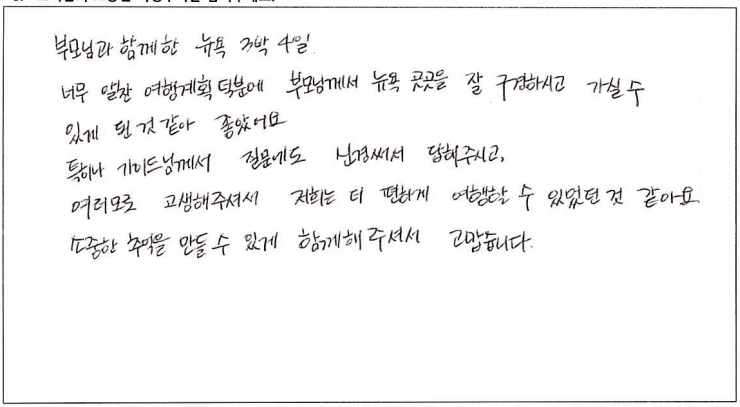 부모님과 함께한 뉴욕 3박 4일.
너무 알찬 여행계획 덕분에 부모님께서 뉴욕 곳곳을 잘 구경하시고 가실 수
있게 된 것 같아 좋았어요
특히나 가이드님께서 질문에도 신경써서 답해주시고,
여러모로 고생해주셔서 저희는 더 편하게 여행할 수 있었던 것 같아요
소중한 추억을 만들 수 있게 함께해 주셔서 고맙습니다.